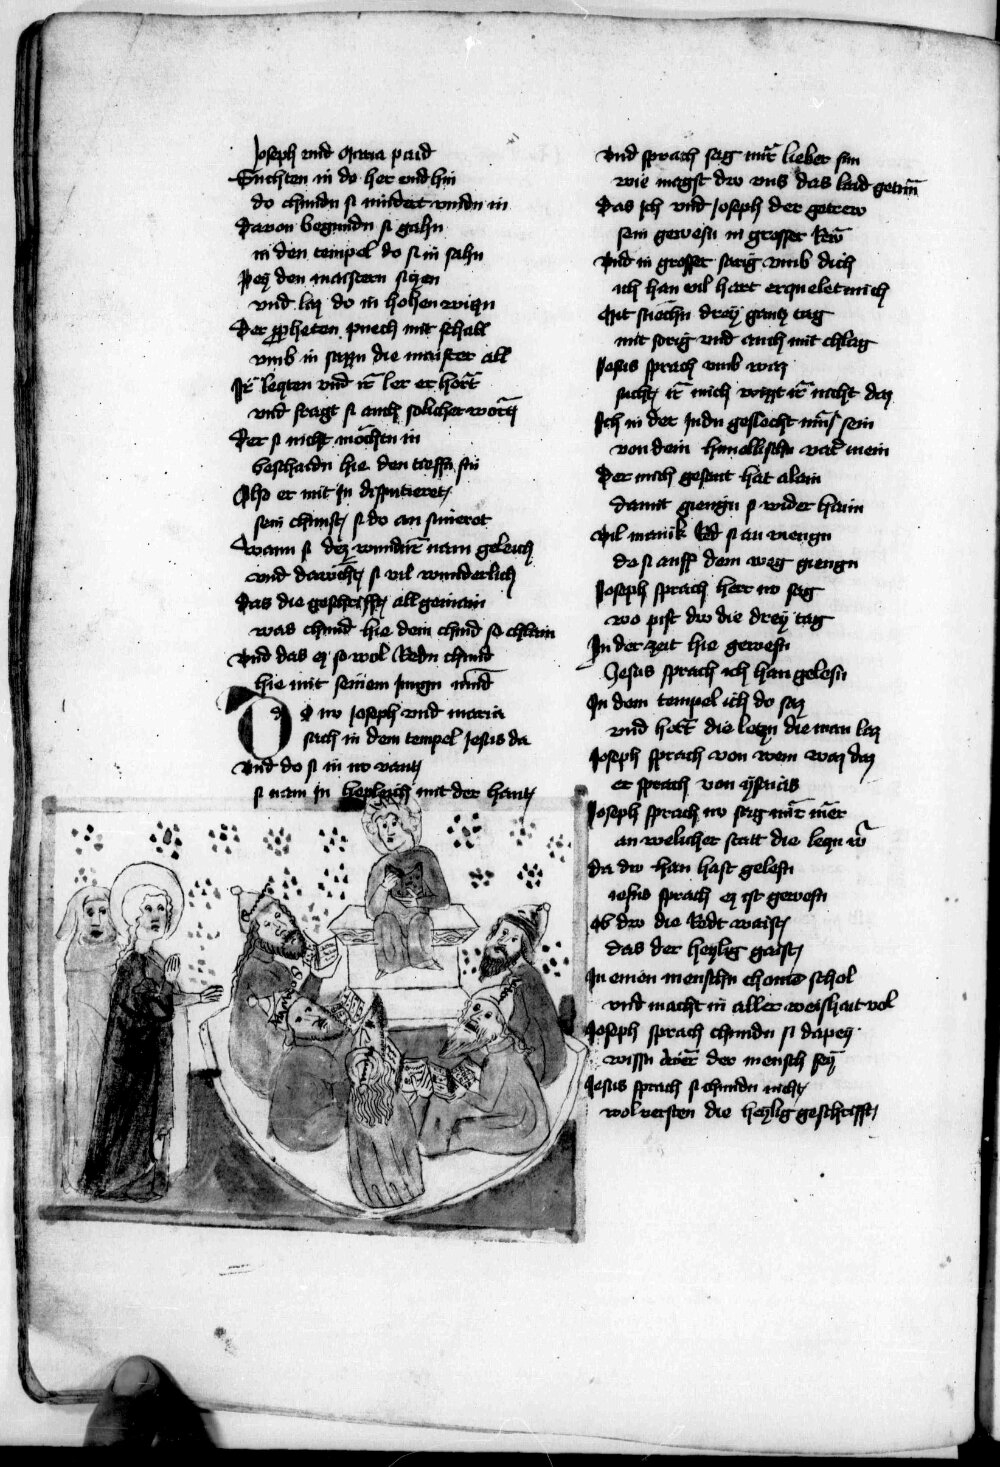 Joseph vnd Maria paid
Suchten in do her vnd hin
do chundn si nindert vindn in
Dauon begundn si gahn
in den tempel do si in sahn
Pey den maistern siczen
vnd las do in hohen wiczn
Der propheten puech mit schall
vmb in sazzn die maister all
Ir leczten vnd ir ler er hort
vnd fragt si auch solicher wort
Der si nicht mochten in
beschaidn hie den treffn sin
Also er mit in disputieret
sein chunst si do an smieret
Wann si des wundert nam geleich
vnd dawcht si vil wunderlich
Das die geschrifft all gemain
was chund hie dem chind so chlain
Vnd das ez so wol Redn chund
hie mit seinem jungn mund
Do nw Joseph vnd maria
sach in dem tempel Jesus da
Vnd do si in no vant
si nam in liepleich mit der hant
Vnd sprach sag mir lieber sun
wie magst dw vns das laid getun
Das Ich vnd Joseph der getrew
sein gewesn in grosser Rew
Vnd in grosser sarig vmb dich
ich han vil hart erquelet mich
Mit suechn drey gancz tag
mit sorig vnd auch mit chlag
Jesus sprach vmb waz
sucht ir mich wigt ir nicht daz
Ich in der Judn geslecht mus sein
von dem himellischn vater mein
Der mich gesant hat alain
damit giengn si wider haim
Vil manik Red si an viengn
do si auff dem weg giengn
Joseph sprach herr nw sag
wo pist dw die drey tag
In der zeit hie gewesn
Jesus sprach ich han gelesn
In dem tempel ich do saz
vnd hort die leczn die man laz
Joseph sprach von wem waz daz
er sprach von ysaias
Joseph sprach nw sag mir mer
an welicher stat die leczn wer
Da dw han hast gelesn
iesus sprach ez ist gewesn
Ob dw die Redt waist
das der heylig gaist
In einen menschn chome schol
vnd macht in aller weishait vol
Joseph sprach chundn si dapey
wissn wer der mensch sey
Jesus sprach si chundn nicht
wol versten die heylig geschrifft